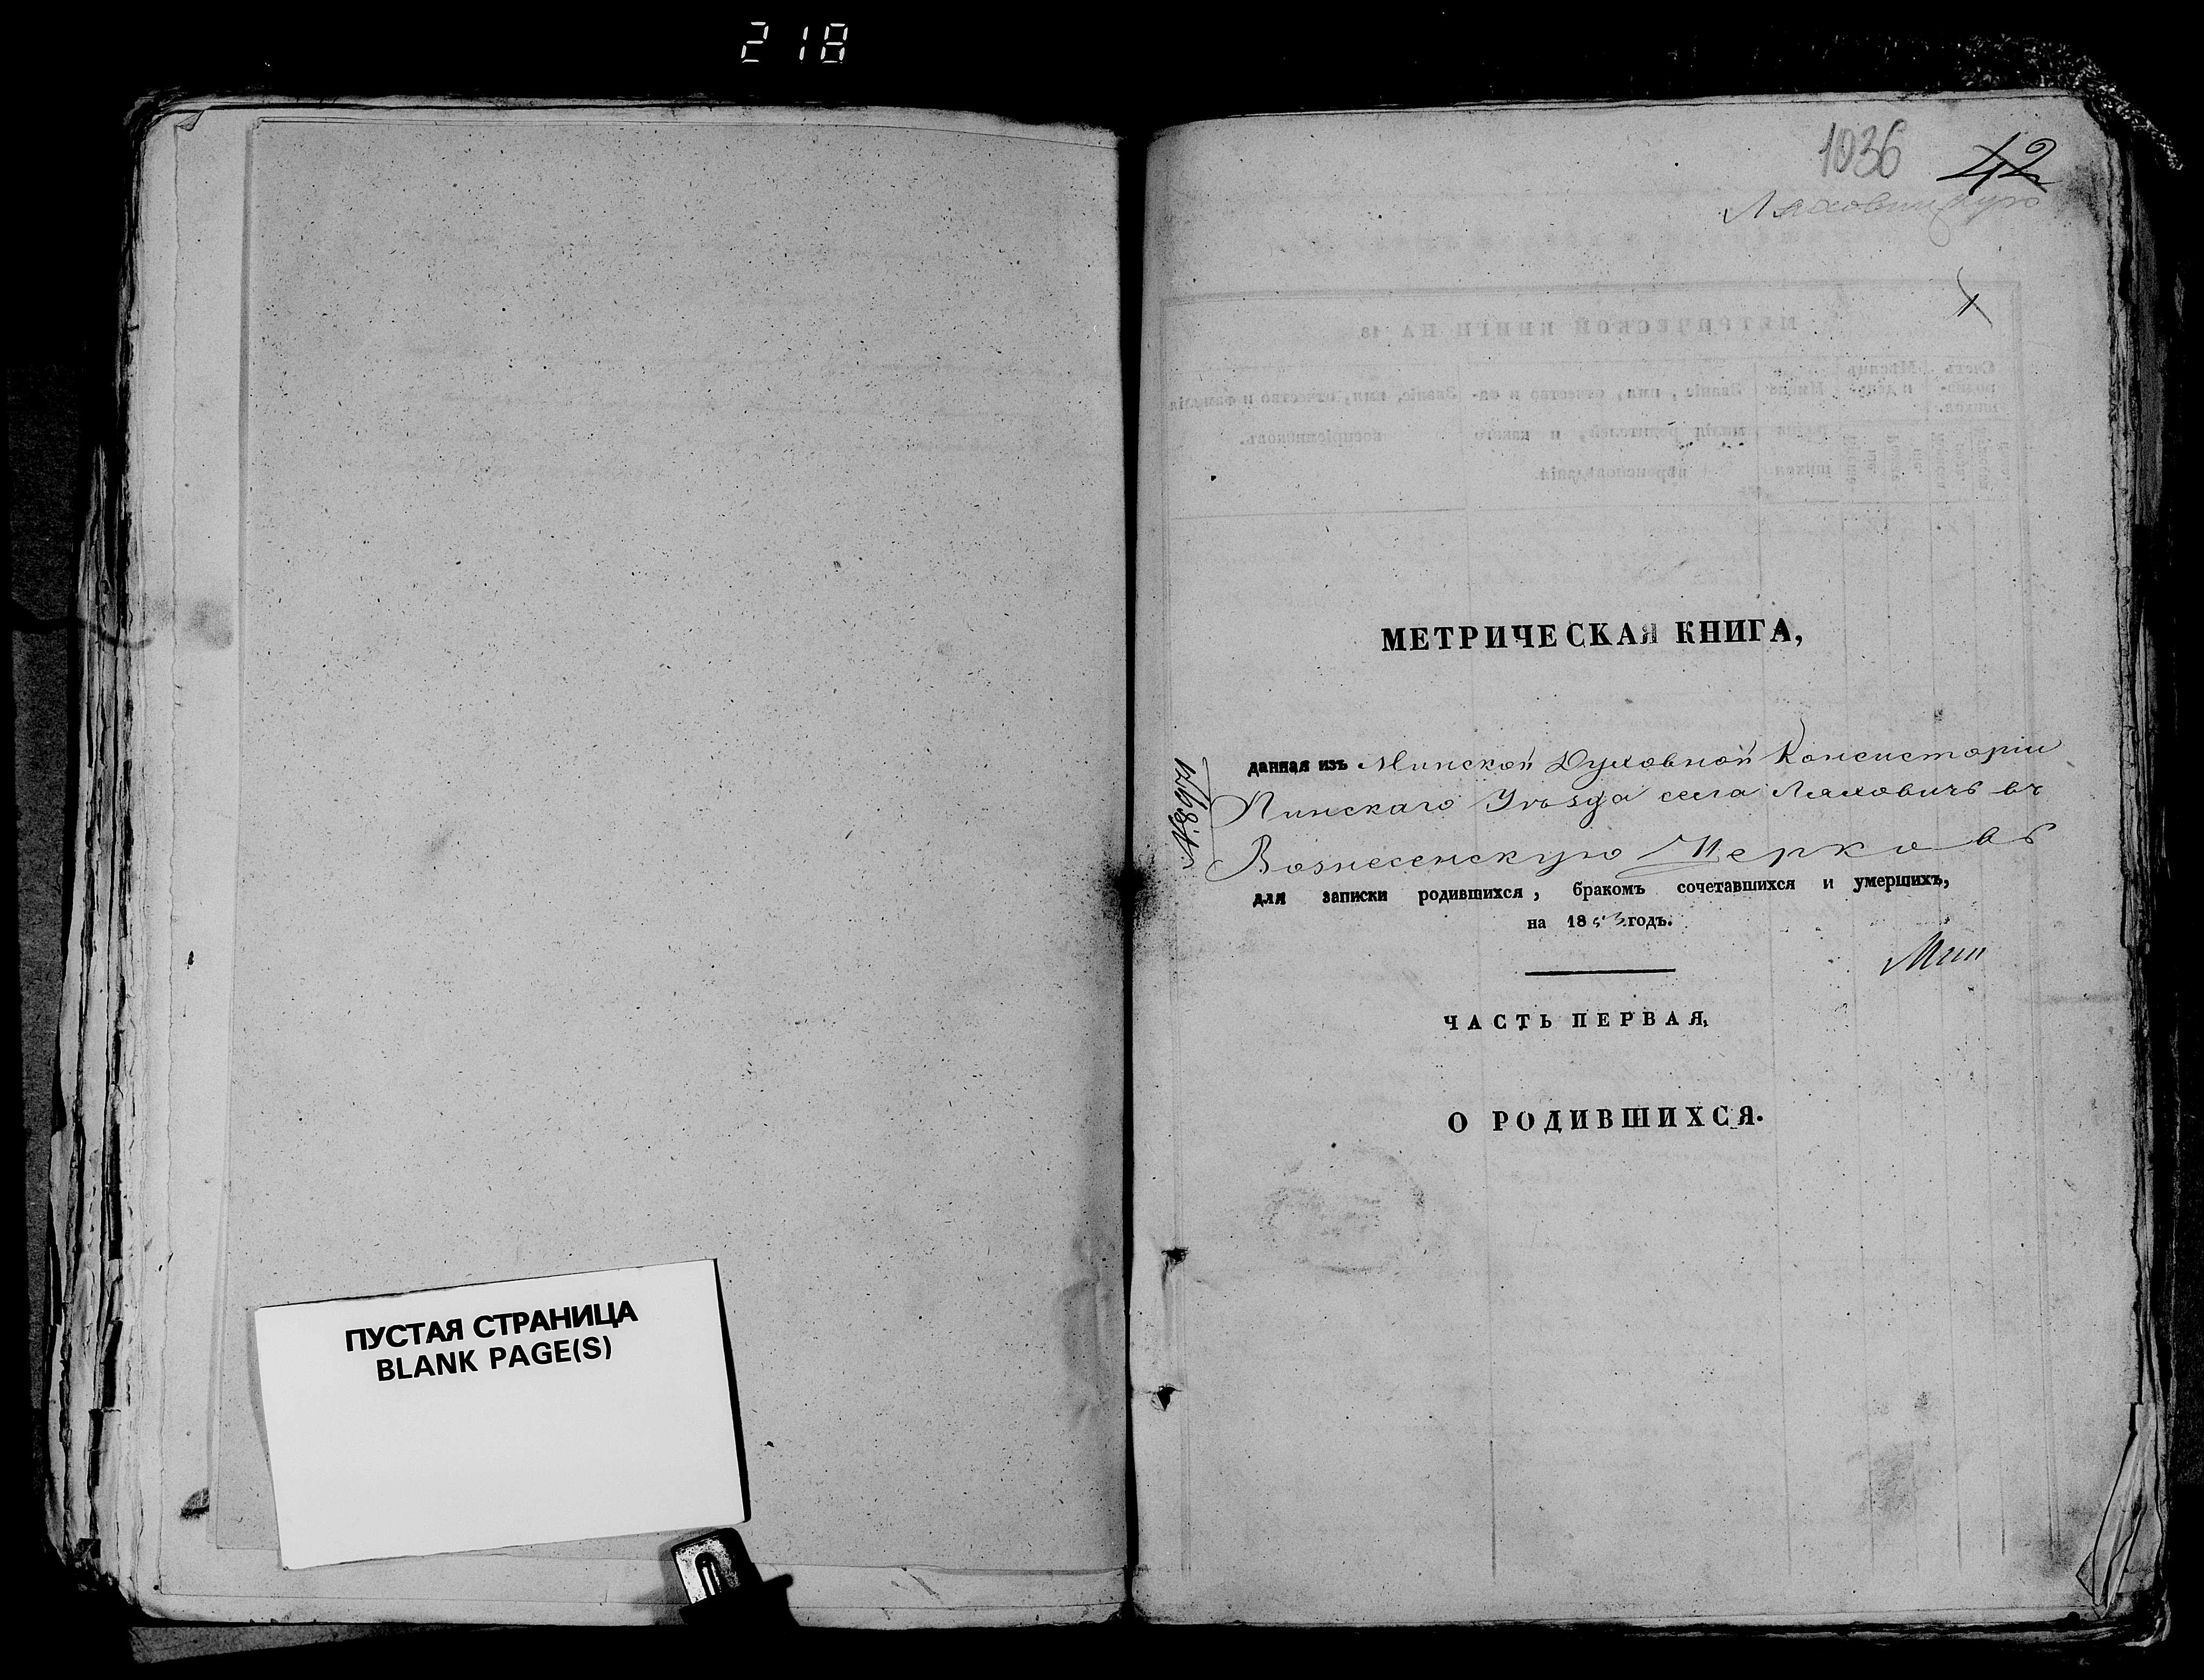 218
ПУСТАЯ СТРАНИЦА
BLANK PAGE(S)
1036 42
МЕТРИЧЕСКАЯ КНИГА,
данная изъ Минской Духовной Консисторіи
Пинскаго Уѣзда села Ляховичь въ
Вознесенскую Церковь
для записки родившихся, бракомъ сочетавшихся и умершихъ,
на 1853 годъ.
ЧАСТЬ ПЕРВАЯ,
О РОДИВШИХСЯ.